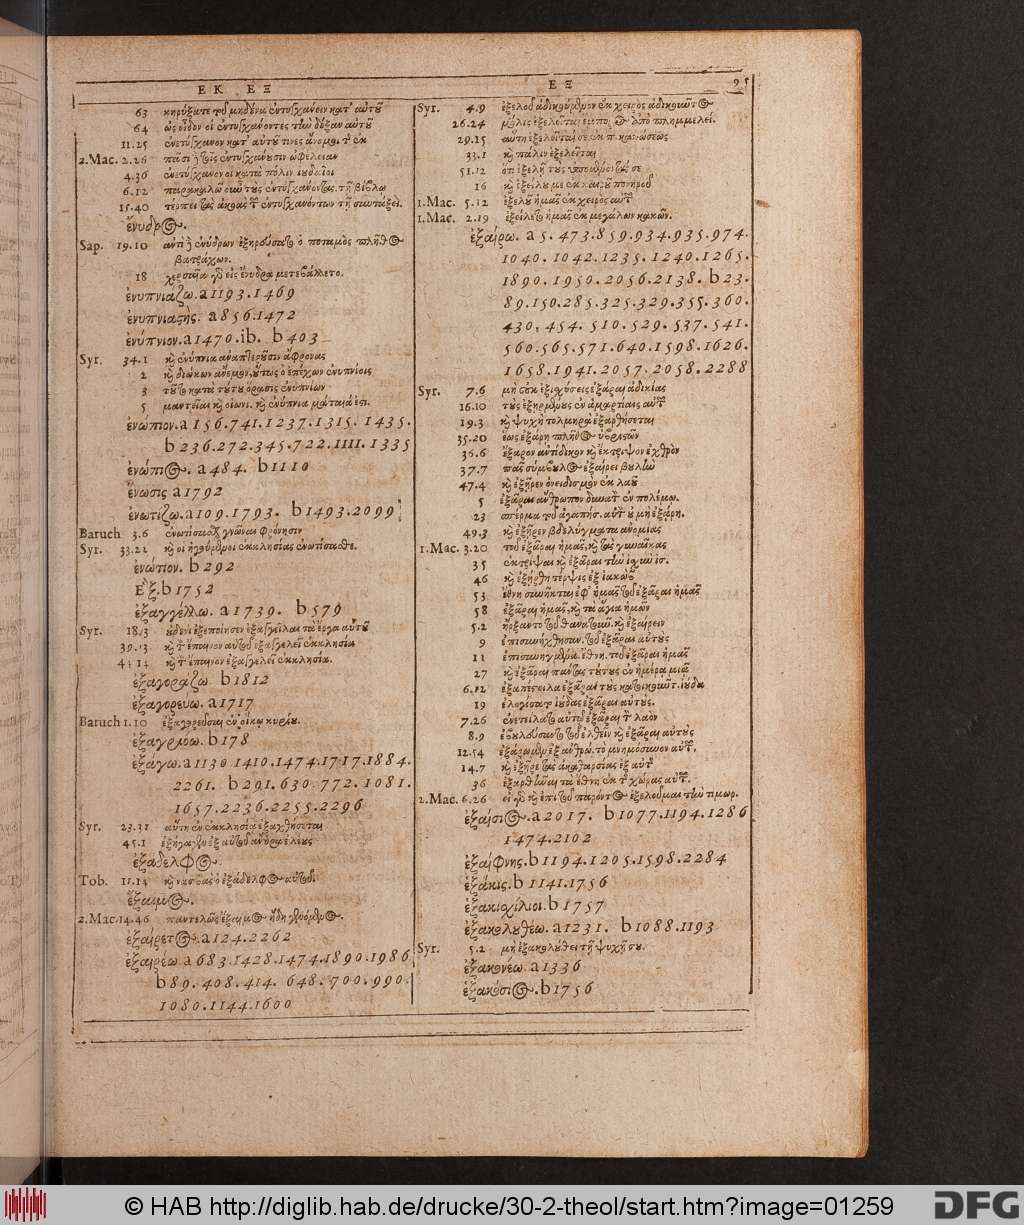 ΕΚ ΕΞ
ΕΞ 95
63 κηρύξατε
64 οἱ αὐτοῦ
11.25 κατ' αὐτοῦ τινες ἄνομοι
2.Mac. 2.26 πᾶσι ὠφέλειαν
4.36 κατὰ πόλιν ἰουδαῖοι
6.12 παρακαλῶ τῇ βίβλῳ
15.40 τέρπει τὰς ἀκοὰς
ἔνυδρος.
Sap. 19.10 ἀντὶ ἐνύδρων ὁ ποταμὸς πλῆθος
βατράχων.
18 χερσαῖα εἰς ἔνυδρα μετεβάλλετο.
ἐνυπνιαζω. a 1193.1469
ἐνυπνιαστὴς. a 856.1472
ἐνύπνιον. a 1470. ib. b 403
Syr. 34.1 καὶ ἐνύπνια ἀναπτεροῦσιν ἄφρονας
2 καὶ διώκων ἄνεμον, οὕτως ὁ ἐπέχων ἐνυπνίοις
3 τοῦτο κατὰ τούτου ὅρασις ἐνυπνίων
5 μαντεῖαι καὶ οἰωνι. καὶ ἐνύπνια μάταιά ἐσι.
ἐνώπιον. a 156.741.1237.1315.1435.
b 236.272.345.722.1111.1335
ἐνώπιος. a 484. b 1110
ἕνωσις a 1792
ἐνωτιζω. a 109.1793. b 1493.2099
Baruch 3.6 γνῶναι φρόνησιν
Syr. 33.21 καὶ οἱ ἡγούμενοι ἐκκλησίας ἐνωτίσασθε.
ἐνώτιον. b 292
Ἐξ. b 1752
ἐξαγγέλλω. a 1739. b 579
Syr. 18.3 ἐξεποίησεν ἐξαγγεῖλαι τὰ ἔργα αὐτοῦ
39.13 καὶ τ ἔπαινον αὐτοῦ ἐξαγγελεῖ ἐκκλησία
44.14 καὶ τ ἔπαινον ἐξαγγελεῖ ἐκκλησία.
ἐξαγοραζω. b 1812
ἐξαγορευω. a 1717
Baruch 1.10 ἐξαγορεῦσαι ἐν οἴκῳ κυρίου.
ἐξαγριοω. b 178
ἐξαγω. a 1130 1410.1474.1717.1884.
2261. b 291.630.772.1081.
1657.2236.2255.2296
Syr. 23.31 αὕτη ἐκκλησία ἐξαχθήσεται
45.1 ἐξήγαγεν ἐξ αὐτοῦ ἄνδρα ἐλέους
ἐξαδελφος.
Tob. 11.14 ὁ ἐξάδελφος αὐτοῦ.
ἔξαιμος.
2.Mac. 14.46 παντελῶς ἔξαιμος ἤδη γενόμενος.
ἐξαίρετος. a 124.2262
ἐξαιρέω. a 683.1428.1474.1890.1986
b 89.408.414.648.700.990.
1080.1144.1600
Syr. 4.9 ἐξελοῦ ἀδικούμενον ἐκ χειρὸς ἀδικοῦντος
26.24 μόλις ἐξελεῖται ἔμπορος ἀπὸ πλημμελεί.
29.15 αὕτη ἐξελεῖται σε ἐκ π. κακώσεως
33.1 καὶ πάλιν ἐξελεῖται
51.12 ὅτι ἐξελῇ τοὺς ὑπομένοντάς σε
16 καὶ ἐξείλου με ἐκ καιροῦ πονηροῦ
1.Mac. 5.12 ἐξελοῦ ἡμᾶς ἐκ χειρὸς αὐτ
1.Mac. 2.19 ἐξείλετο ἡμᾶς ἐκ μεγάλων κακῶν.
ἐξαίρω. a 5.473.859.934.935.974.
1040.1042.1235.1240.1265.
1890.1950.2056.2138. b 23.
89.150.285.325.329.355.360.
430.454.510.529.537.541.
560.565.571.640.1598.1626.
1658.1941.2057.2058.2288
Syr. 7.6 μὴ οὐκ ἐξισχύσεις ἐξᾶραι ἀδικίας
16.10 τοὺς ἐξηρμένους ἐν ἁμαρτίαις αὐτ
19.3 καὶ ψυχὴ τολμηρὰ ἐξαρθήσεται
35.20 ἕως ἐξάρῃ πλῆθος ὑβριστῶν
36.6 ἔξαρον ἀντίδικον καὶ ἔκτριψον ἐχθρὸν
37.7 πᾶς σύμβουλος ἐξαίρει βουλὴν
47.4 καὶ ἐξῆρεν ὀνειδισμὸν ἐκ λαοῦ
5 ἐξᾶραι ἄνθρωπον δυνατ ἐν πολέμῳ.
23 σπέρμα τοῦ ἀγαπήσ. αὐτ οὐ μὴ ἐξάρῃ.
49.3 καὶ ἐξῆρεν βδελύγματα ἀνομίας
1.Mac. 3.20 τοῦ ἐξᾶραι ἡμᾶς, καὶ τὰς γυναῖκας
35 ἐκτρῖψαι καὶ ἐξᾶραι τὴν ἰσχὺν ἰσ.
46 καὶ ἐξήρθη τέρψις ἐξ ἰακώβ
53 ἔθνη συνῆκται ἐφ' ἡμᾶς τοῦ ἐξᾶραι ἡμᾶς
58 ἐξᾶραι ἡμᾶς, καὶ τὰ ἅγια ἡμῶν
5.2 ἤρξαντο τοῦ θανατοῦν. καὶ ἐξαίρειν
9 ἐπισυνήχθησαν. τοῦ ἐξᾶραι αὐτοὺς
11 ἔθνη. τοῦ ἐξᾶραι ἡμᾶς
27 καὶ ἐξᾶραι πάντας τούτους ἐν ἡμέρᾳ μιᾷ
6.12 ἐξαπέστειλα ἐξᾶραι τοὺς κατοικοῦντ. ἰούδα
19 ἐλογίσατο ἰούδας ἐξᾶραι αὐτούς.
7.26 ἐνετείλατο αὐτῷ ἐξᾶραι τ λαόν
8.9 ἐβουλεύσαντο τοῦ ἐλθεῖν καὶ ἐξᾶραι αὐτοὺς
12.54 ἐξάρωμεν ἐξ ἀνθρώ. τὸ μνημόσυνον αὐτ.
14.7 καὶ ἐξῆρε τὰς ἀκαθαρσίας ἐξ αὐτ
36 ἐξαρθῆναι τὰ ἔθνη ἐκ τ χώρας αὐτ.
2.Mac. 6.26 εἰ γὰρ καὶ ἐπὶ τοῦ παρόντος ἐξελοῦμαι τὴν τιμωρ.
ἐξαίσιος. a 2017. b 1077.1194.1286
1474.2102
ἐξαίφνης. b 1194.1205.1598.2284
ἑξάκις. b 1141.1756
ἑξακισχίλιοι. b 1757
ἐξακολουθέω. a 1231. b 1088.1193
Syr. 5.2 μὴ ἐξακολούθει τῇ ψυχῇ σου.
ἐξακονέω. a 1336
ἑξακόσιος. b 1756
© HAB http://diglib.hab.de/drucke/30-2-theol/start.htm?image=01259
DFG